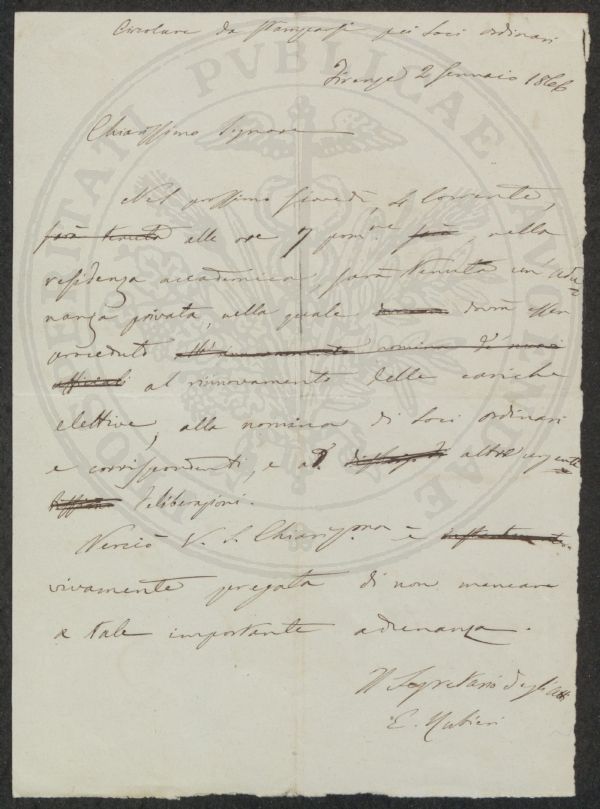 Circolare da stamparsi pei Soci ordinari
Firenze 2 Gennaio 1866
Chiarissimo Signore
Nel prossimo Giovedì, 4 Corrente,
sarà tenuta alle ore 7 pom.ne sarà nella
residenza accademica, sarà tenuta un'adu-
nanza privata, nella quale dovrà esser
proceduto all'annovamento nomina di nuovi
officiali al rinnovamento delle cariche
elettive, alla nomina di Soci ordinari
e corrispondenti, e ad altre urgenti
deliberazioni.
Perciò V. S. Chiar.ma è
vivamente pregata di non mancare
a tale importante adunanza.
Il Segretario degli Atti
E. Rubieri
PROSPERITATI PVBLICAE AVGENDAE